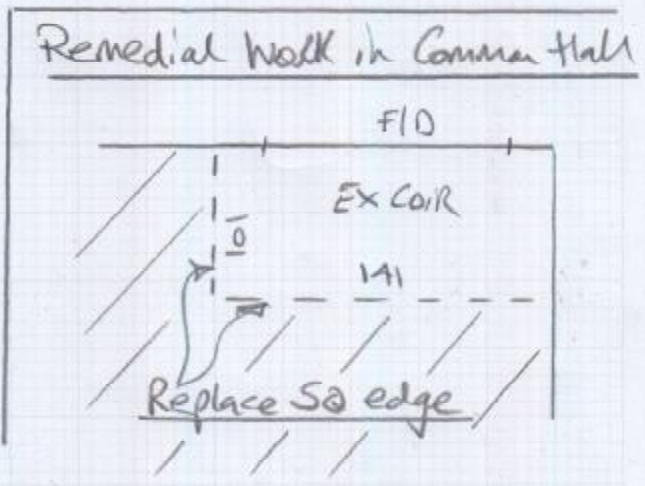 Remedial Work in Common Hall
F/D
Ex Coir
141
Replace SQ edge